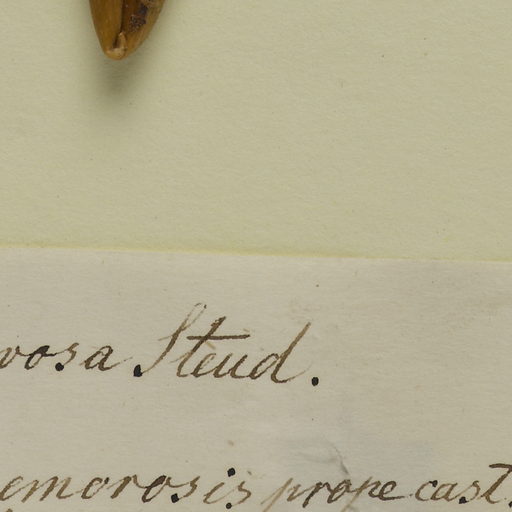 vosa Steud.
emorosis prope cast.